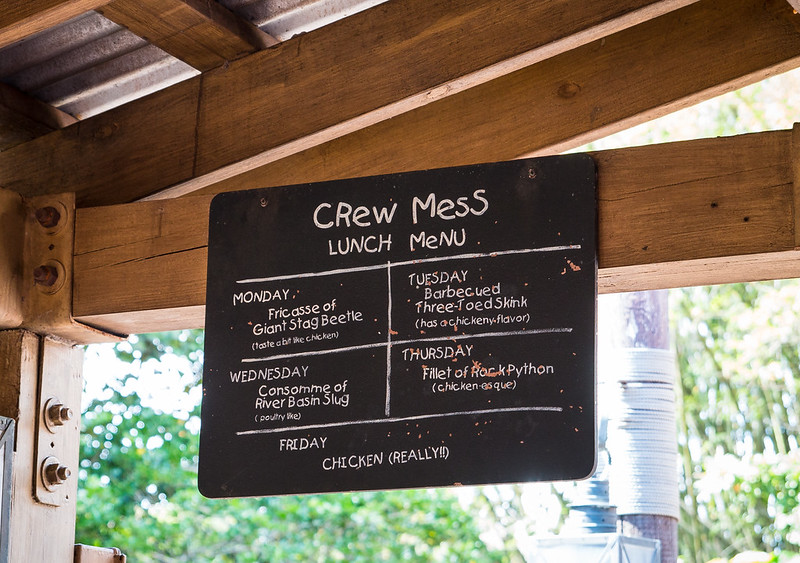 CReW MeSS
LUNCH MeNU
MONDAY
Fricasse of
Giant Stag Beetle
(taste a bit like chicken)
TUESDAY
Barbecued
Three-Toed Skink
(has a chickeny-flavor)
WEDNESDAY
Consomme of
River Basin Slug
(poultry like)
THURSDAY
Fillet of Rock Python
(chicken-esque)
FRIDAY
CHICKEN (REALLY!!)